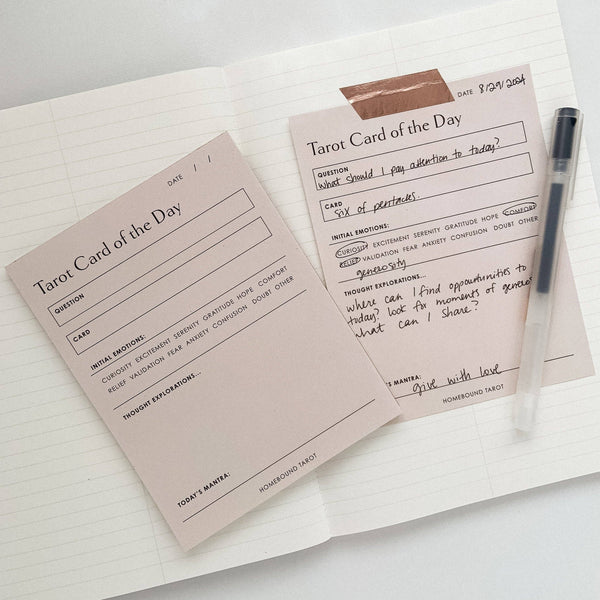 DATE / /
Tarot Card of the Day
QUESTION
CARD
INITIAL EMOTIONS:
CURIOSITY EXCITEMENT SERENITY GRATITUDE HOPE COMFORT
RELIEF VALIDATION FEAR ANXIETY CONFUSION DOUBT OTHER
THOUGHT EXPLORATIONS...
TODAY'S MANTRA:
HOMEBOUND TAROT
DATE 8/29/2024
Tarot Card of the Day
QUESTION
What should I pay attention to today?
CARD
six of pentacles.
INITIAL EMOTIONS:
CURIOSITY EXCITEMENT SERENITY GRATITUDE HOPE COMFORT
RELIEF VALIDATION FEAR ANXIETY CONFUSION DOUBT OTHER
generosity
THOUGHT EXPLORATIONS...
where can I find oppourtunities to
today? look for moments of
what can I share?
MANTRA: give with love
HOMEBOUND TAROT